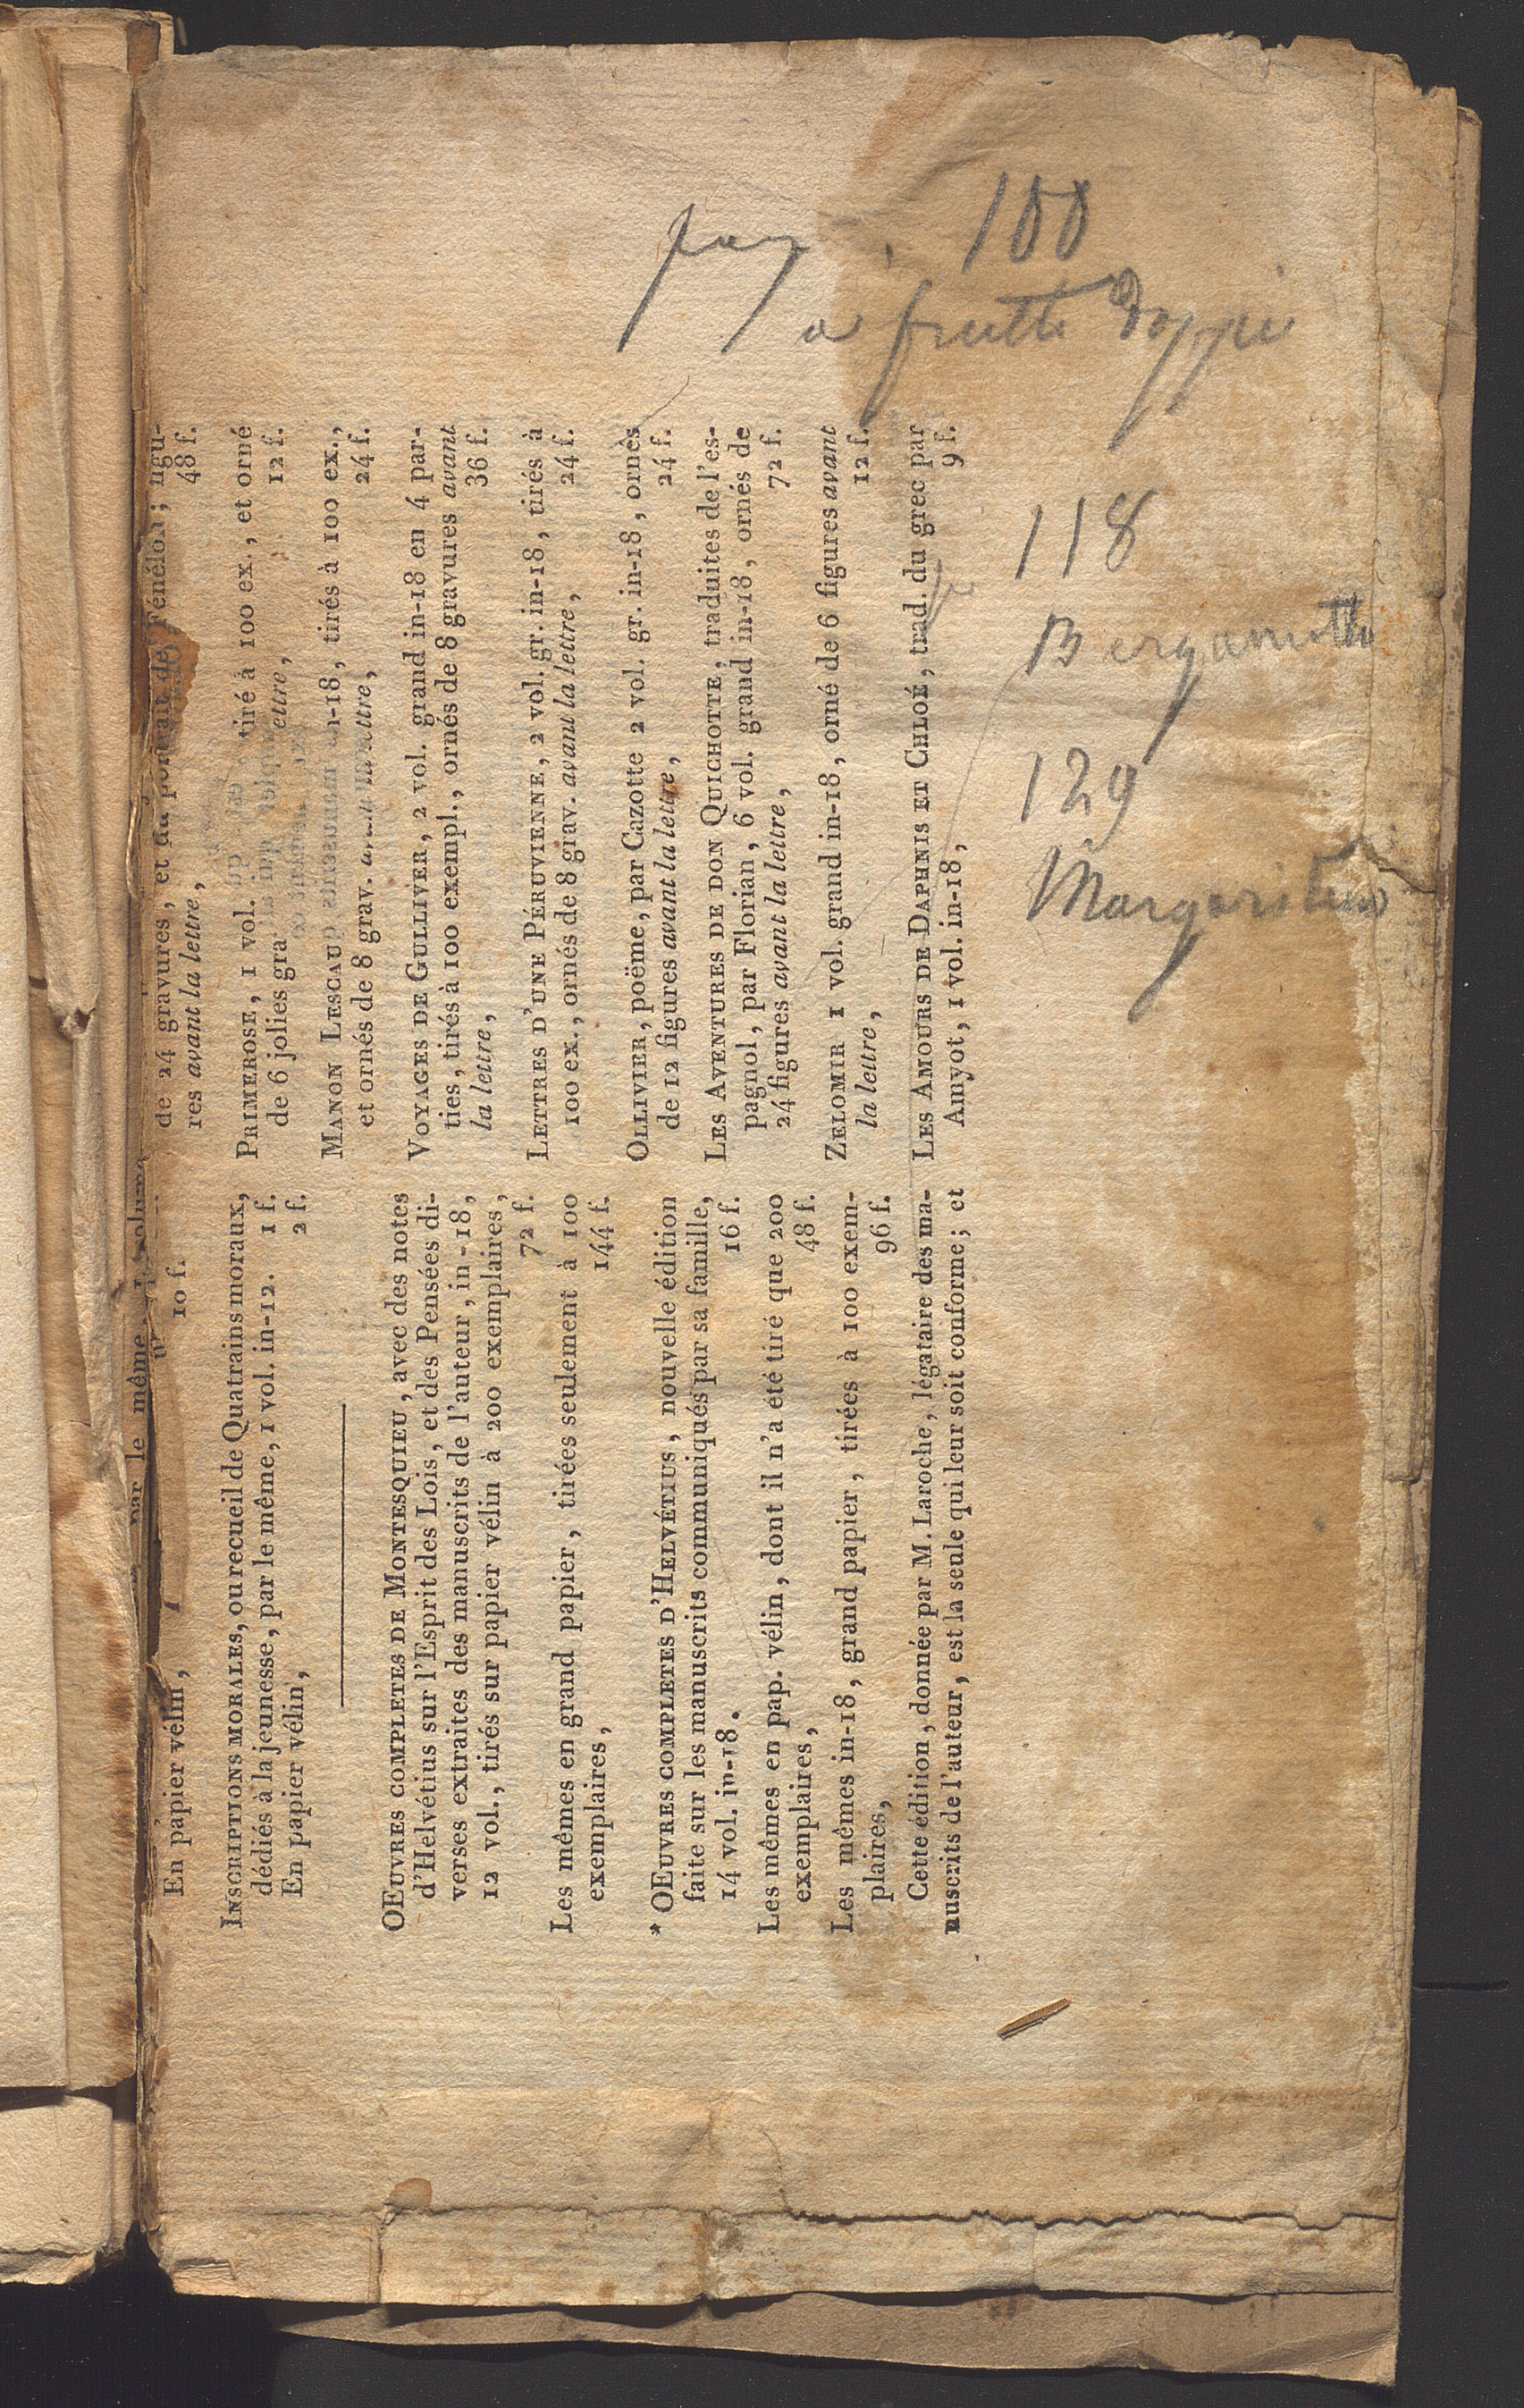 par le même
10 f.
En papier vélin,
INSCRIPTIONS MORALES, ou recueil de Quatrains moraux,
dédiés à la jeunesse, par le même, 1 vol. in-12. 1 f.
En papier vélin, 2 f.
OEUVRES COMPLETES DE MONTESQUIEU, avec des notes
d'Helvétius sur l'Esprit des Lois, et des Pensées di-
verses extraites des manuscrits de l'auteur, in-18,
12 vol., tirés sur papier vélin à 200 exemplaires,
72 f.
Les mêmes en grand papier, tirées seulement à 100
exemplaires, 144 f.
* OEUVRES COMPLETES D'HELVÉTIUS, nouvelle édition
faite sur les manuscrits communiqués par sa famille,
14 vol. in-18. 16 f.
Les mêmes en pap. vélin, dont il n'a été tiré que 200
exemplaires, 48 f.
Les mêmes in-18, grand papier, tirées à 100 exem-
plaires, 96 f.
Cette édition, donnée par M. Laroche, légataire des ma-
nuscrits de l'auteur, est la seule qui leur soit conforme; et
de 24 gravures, et du portrait de Fénélon; figu-
res avant la lettre, 48 f.
PRIMEROSE, 1 vol. tiré à 100 ex., et orné
de 6 jolies gra lettre, 12 f.
MANON LESCAU in-18, tirés à 100 ex.,
et ornés de 8 grav. avant la lettre, 24 f.
VOYAGES DE GULLIVER, 2 vol. grand in-18 en 4 par-
ties, tirés à 100 exempl., ornés de 8 gravures avant
la lettre, 36 f.
LETTRES D'UNE PÉRUVIENNE, 2 vol. gr. in-18, tirés à
100 ex., ornés de 8 grav. avant la lettre, 24 f.
OLLIVIER, poëme, par Cazotte 2 vol. gr. in-18, ornés
de 12 figures avant la lettre, 24 f.
LES AVENTURES DE DON QUICHOTTE, traduites de l'es-
pagnol, par Florian, 6 vol. grand in-18, ornés de
24 figures avant la lettre, 72 f.
ZELOMIR 1 vol. grand in-18, orné de 6 figures avant
la lettre, 12 f.
LES AMOURS DE DAPHNIS ET CHLOÉ, trad. du grec par
Amyot, 1 vol. in-18, 9 f.
pag. 100
a frutti doppi
118
129